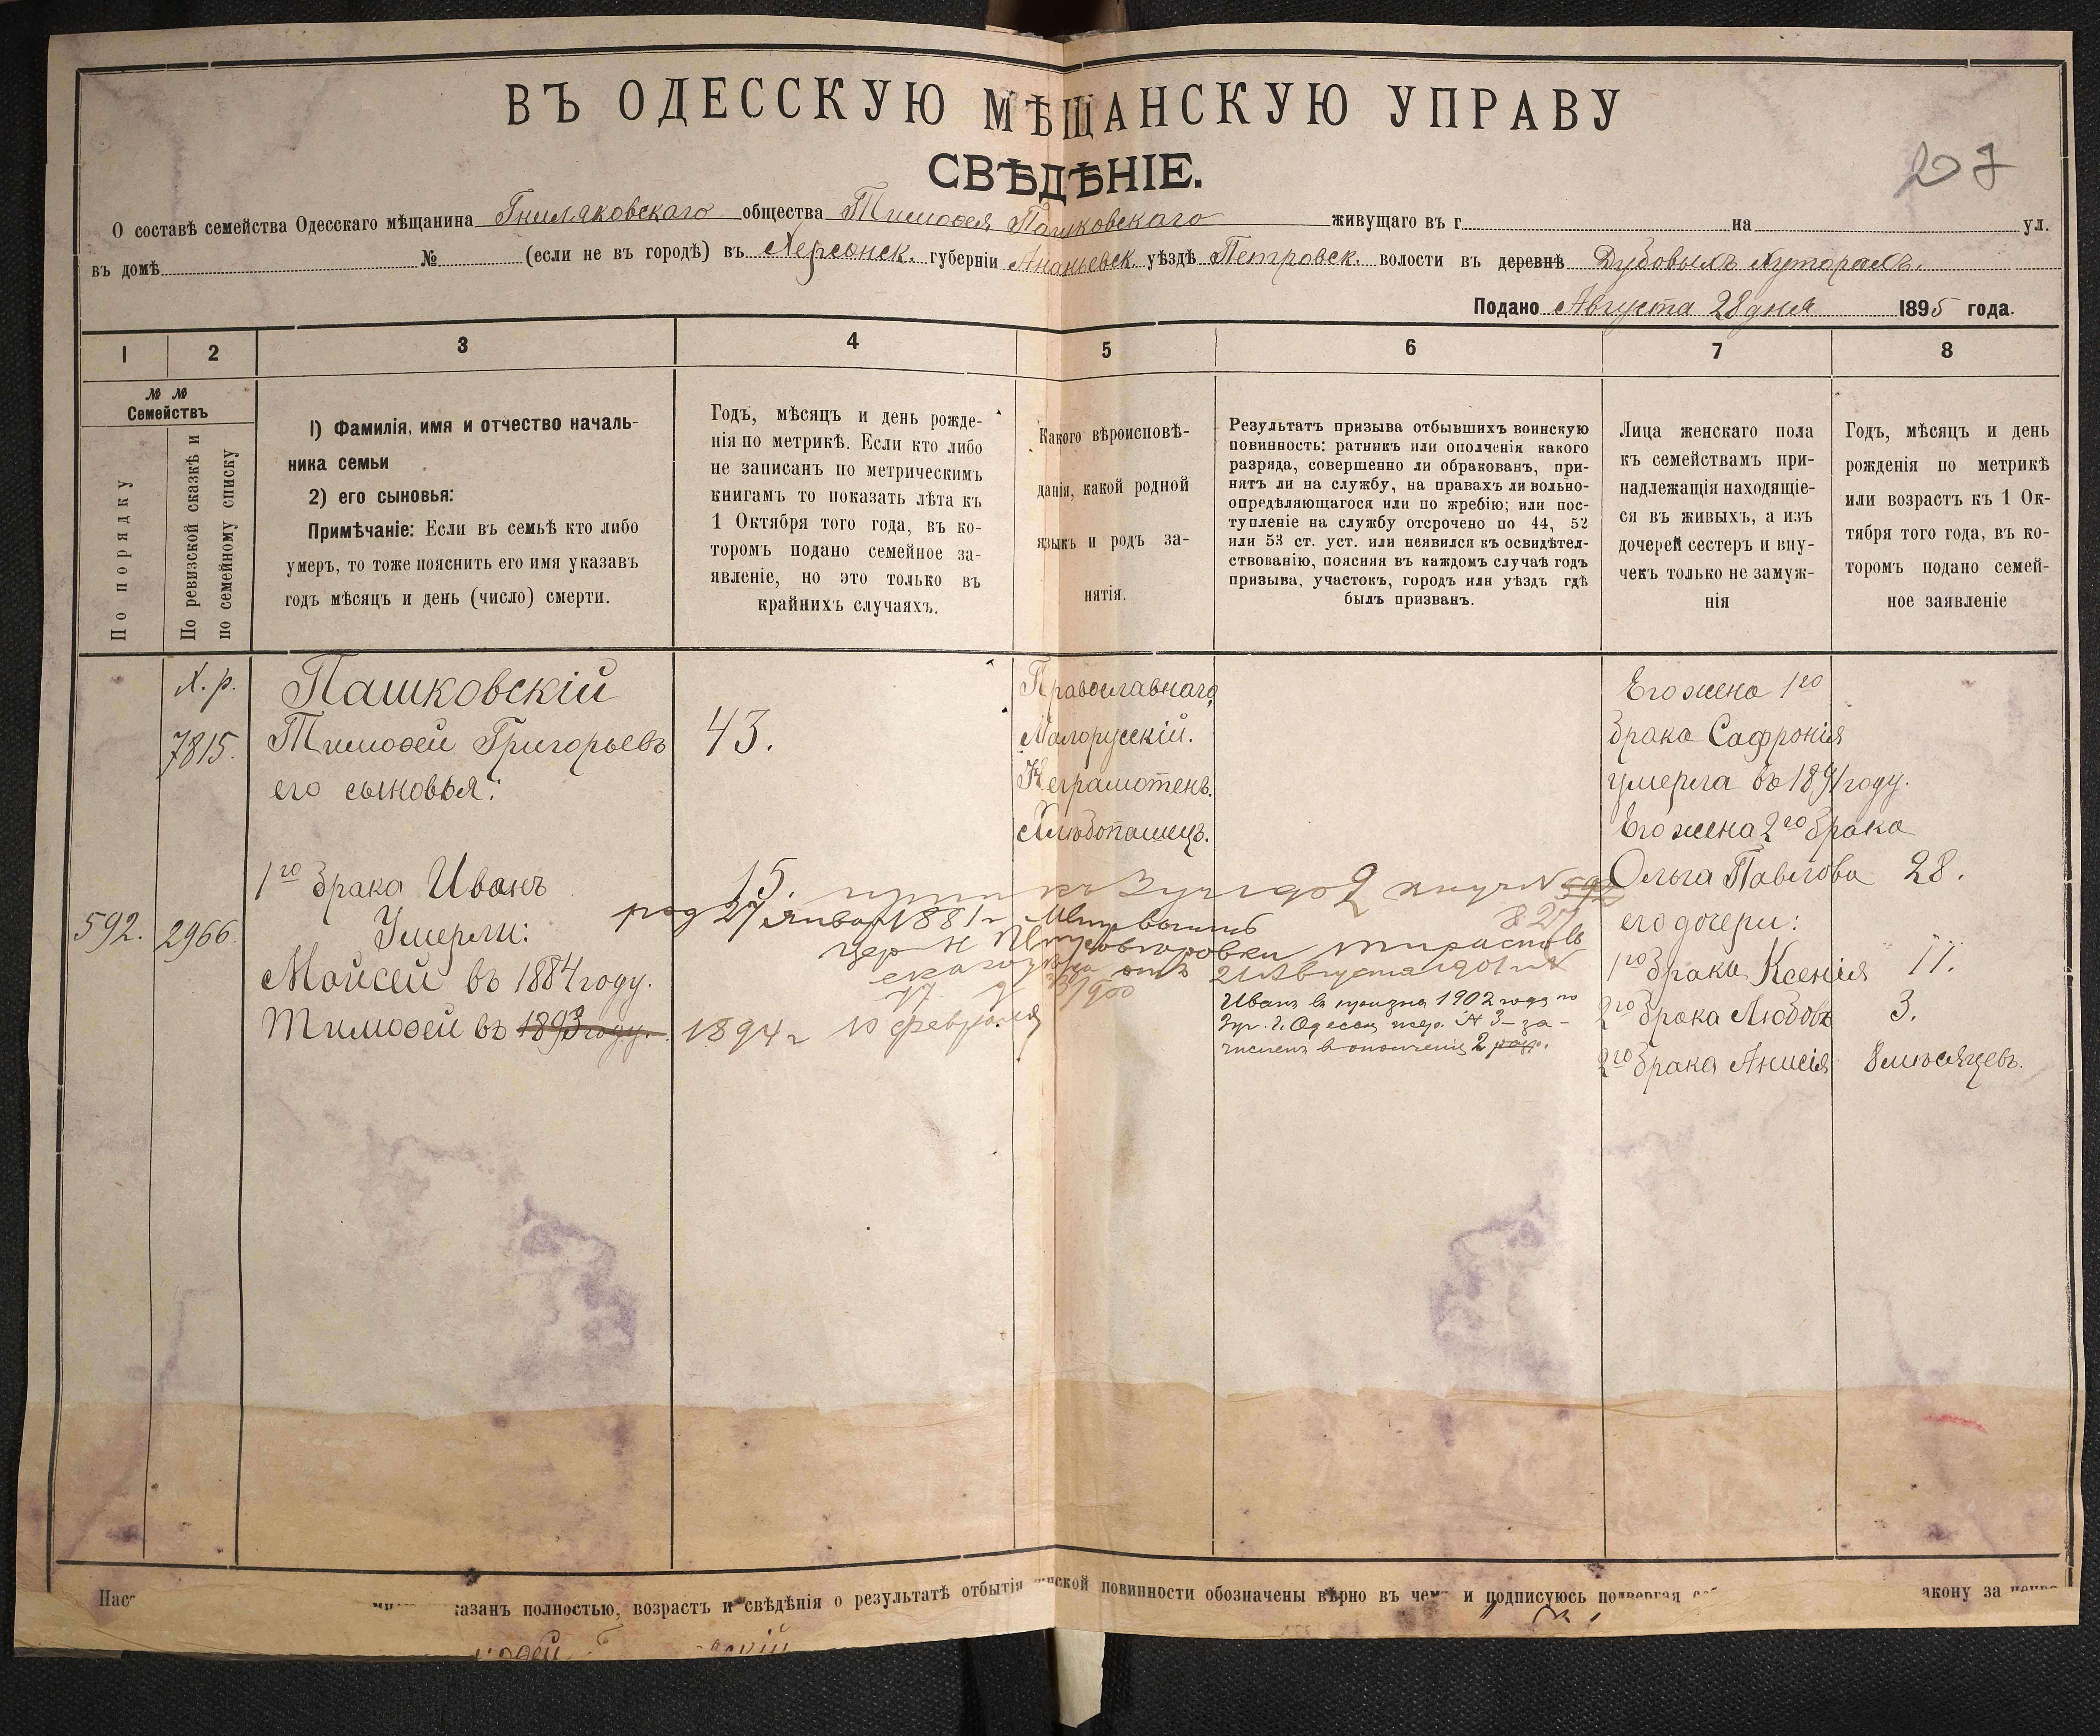 ВЪ ОДЕССКУЮ МѢЩАНСКУЮ УПРАВУ
СВѢДѢНІЕ.
207
О составѣ семейства Одесскаго мѣщанина Гниляковскаго общества Тимофея Пашковскаго живущаго въ г на ул.
въ домѣ № (если не въ городѣ) въ Херсонск. губерніи Ананьевск уѣздѣ Петровск. волости въ деревнѣ Дубовыхъ Хуторахъ.
Подано Августа 28 дня 1895 года.
1 2 3 4 5 6 7 8
№ №
Семействъ
По порядку
По ревизской сказкѣ и
по семейному списку
1) Фамилія, имя и отчество началь-
ника семьи
2) его сыновья:
Примѣчаніе: Если въ семьѣ кто либо
умеръ, то тоже пояснить его имя указавъ
годъ мѣсяцъ и день (число) смерти.
Годъ, мѣсяцъ и день рожде-
нія по метрикѣ. Если кто либо
не записанъ по метрическимъ
книгамъ то показать лѣта къ
1 Октября того года, въ ко-
торомъ подано семейное за-
явленіе, но это только въ
крайнихъ случаяхъ.
Какого вѣроисповѣ-
данія, какой родной
языкъ и родъ за-
нятія.
Результатъ призыва отбывшихъ воинскую
повинность: ратникъ или ополченія какого
разряда, совершенно ли обракованъ, при-
нятъ ли на службу, на правахъ ли вольно-
опредѣляющагося или по жребію; или пос-
тупленіе на службу отсрочено по 44, 52
или 53 ст. уст. или неявился къ освидѣтел-
ствованію, поясняя въ каждомъ случаѣ годъ
призыва, участокъ, городъ или уѣздъ гдѣ
былъ призванъ.
Лица женскаго пола
къ семействамъ при-
надлежащія находящіе-
ся въ живыхъ, а изъ
дочерей сестеръ и вну-
чекъ только не замуж-
нія
Годъ, мѣсяцъ и день
рожденія по метрикѣ
или возрастъ къ 1 Ок-
тября того года, въ ко-
торомъ подано семей-
ное заявленіе
Х. р.
7815.
Пашковскій
Тимофей Григорьевъ
его сыновья:
43.
Православнаго,
Малорусскій.
Неграмотенъ.
Хлѣбопашецъ.
Его жена 1го
брака Сафронія
умерла въ 1891 году.
Его жена 2го брака
Ольга Павлова 28.
1го брака Иванъ 15.
592
827
род 27 января 1881 г
его дочери:
592. 2966.
Умерли:
Моисей въ 1884 году.
отъ 21 Августа 1901 г
1го брака Ксенія 11.
Тимофей въ 1893 году. 1894 г 10 февраля
Иванъ въ призывъ 1902 года по
г. Одессы жер. № 3 – за-
численъ въ ополченіе 2 разр.
2го брака Любовь 3.
2го брака Анисія 8 мѣсяцевъ.
казанъ полностью, возрастъ и свѣдѣнія о результатѣ отбытія инской повинности обозначены вѣрно въ чемъ и подписуюсь подвергая акону за